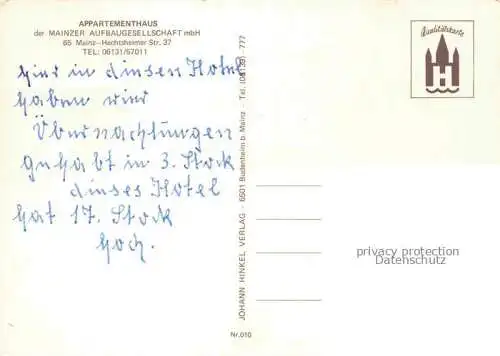 APPARTEMENTHAUS
der MAINZER AUFBAUGESELLSCHAFT mbH
65 Mainz-Hechtsheimer Str. 37
TEL: 06131/57011
hier in diesen Hotel
haben wier
Übernachtungen
gehabt in 3. Stock
dieses Hotel
hat 17. Stock
hoch.
JOHANN HINKEL VERLAG - 6501 Budenheim b. Mainz - Tel. 777
Nr. 010
Qualitätskarte
privacy protection
Datenschutz